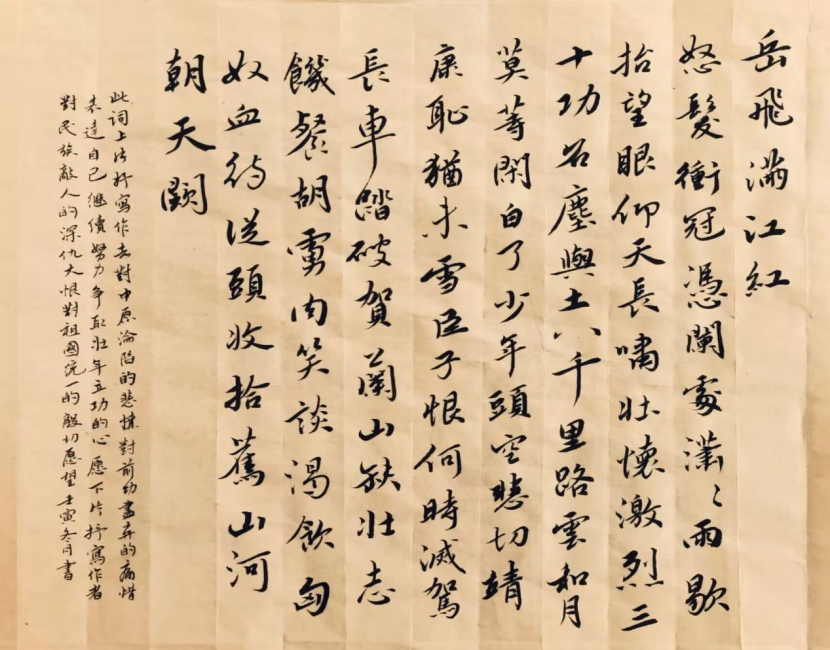 岳飛滿江紅
怒髮衝冠憑闌處瀟〻雨歇
抬望眼仰天長嘯壯懷激烈三
十功名塵與土八千里路雲和月
莫等閑白了少年頭空悲切靖
康恥猶未雪臣子恨何時滅駕
長車踏破賀蘭山缺壯志
饑餐胡虜肉笑談渴飲匈
奴血待從頭收拾舊山河
朝天闕
此詞上片抒寫作者對中原淪陷的悲憤對前功盡弃的痛惜
表達自己继續努力争取壯年立功的心愿下片抒寫作者
對民族敵人的深仇大恨對祖國统一的殷切愿望壬寅冬月書